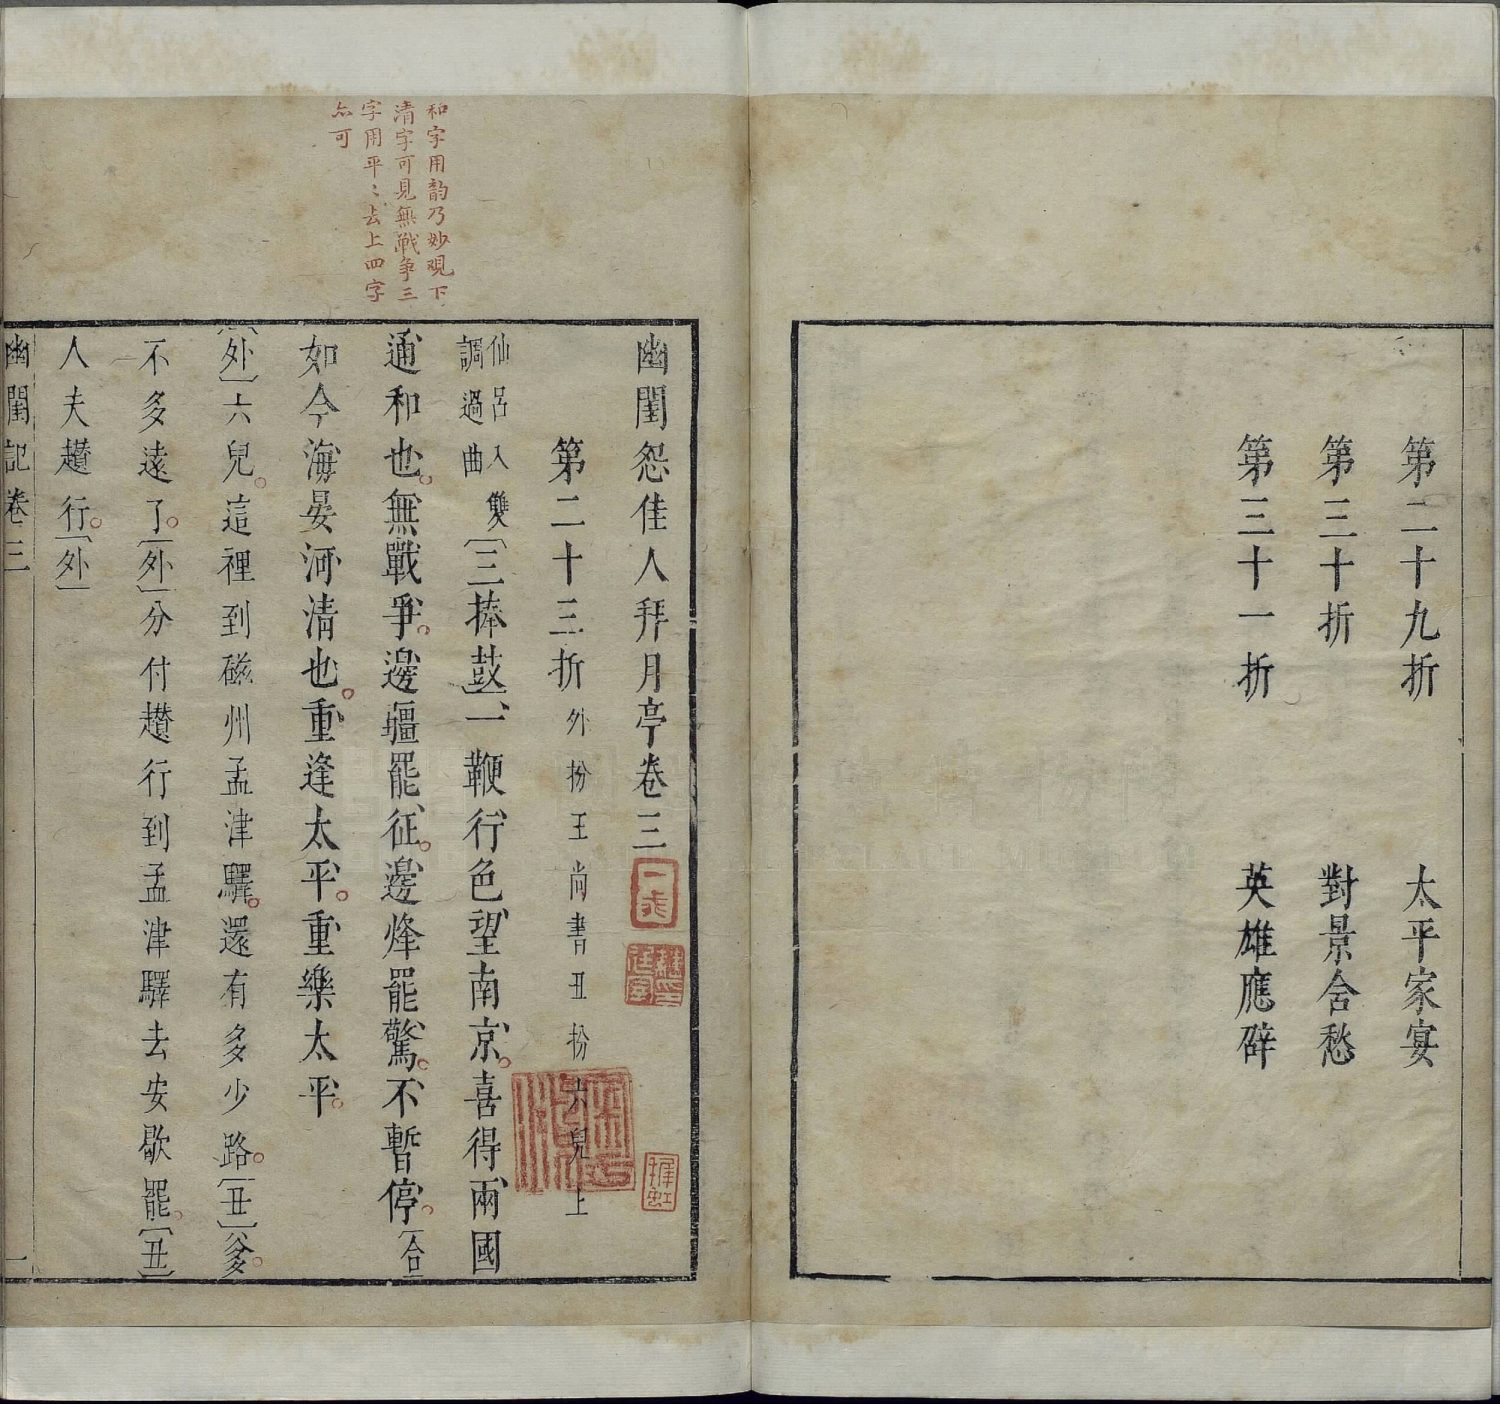 第二十九折 太平家宴
第三十折 對景含愁
第三十一折 英雄應辟
和字用韵乃妙观下
清字可見無戰争三
字用平〻去上四字
亦可
幽閨怨佳人拜月亭卷三
第二十三折 外扮王尚書丑扮六兒上
仙呂入雙
調過曲
〔三捧鼓〕一鞭行色望南京。喜得兩國
通和也。無戰爭。邊疆罷征。邊烽罷驚。不暫停。〔合〕
如今海晏河清也。重逢太平。重樂太平。
〔外〕六兒。這裡到磁州孟津驛。還有多少路。〔丑〕爹。
不多遠了。〔外〕分付趲行到孟津驛去安歇罷。〔丑〕
人夫趲行。〔外〕
幽閨記卷三 一